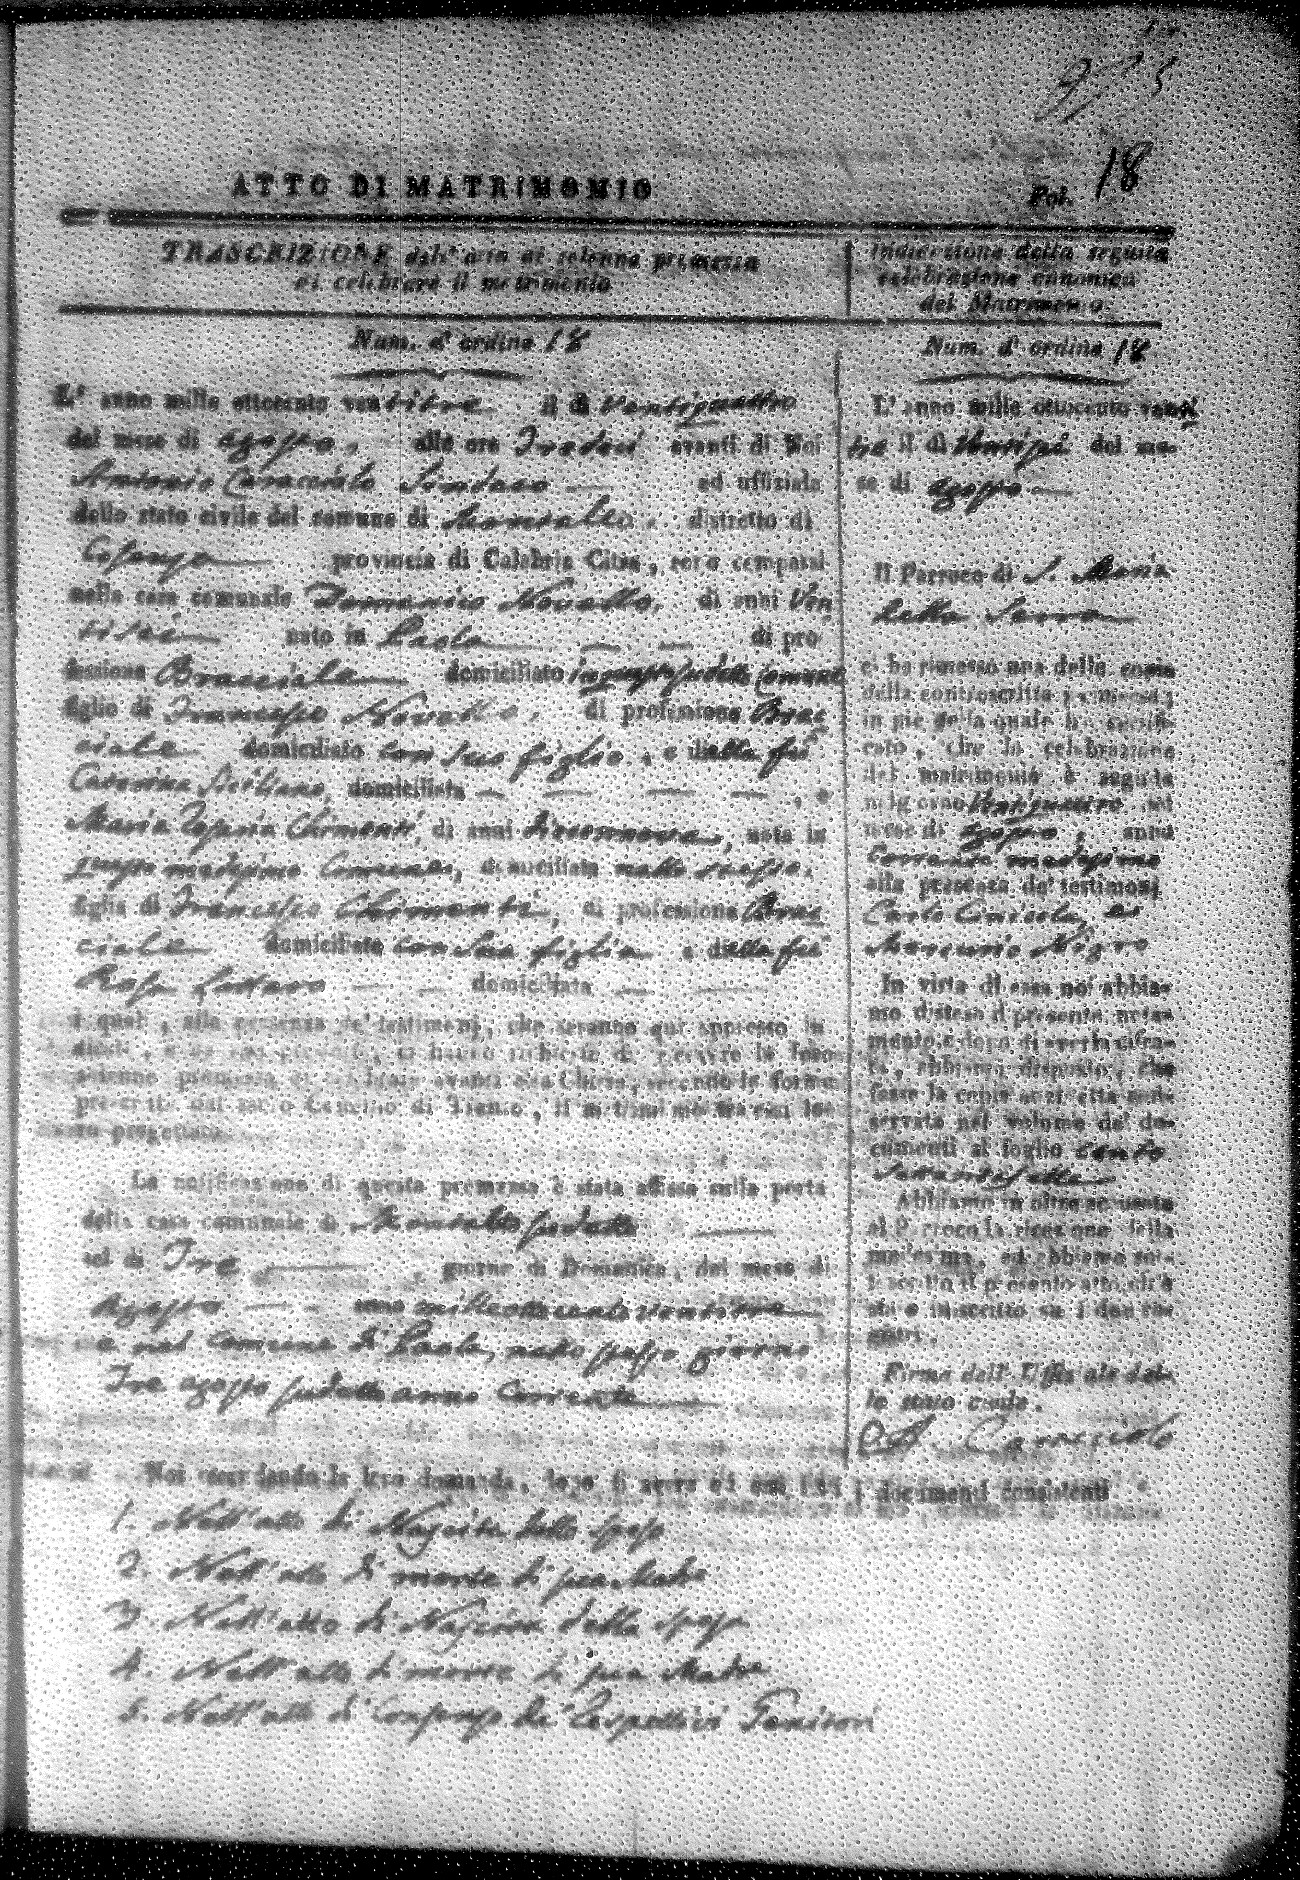 ATTO DI MATRIMONIO
Fol. 18
TRASCRIZIONE dell'atto di solenne promessa
di celebrare il matrimonio
Num. d' ordine 18
L' anno mille ottocento ventitre il di Ventiquattro
del mese di agosto, alle ore Tredeci avanti di Noi
Antonio Caracciolo Sindaco ed uffiziale
dello stato civile del comune di distretto di
Cosenza provincia di Calabria Citra, sono comparsi
nella casa comunale Domenico Novello, di anni Ven
tisei nato in Paola di pro
fessione Bracciale domiciliato in questo sudetto Comune
figlio di Francesco Novello, di professione Brac
ciale domiciliato con suo figlio, e della fu
Caterina Siciliano, domiciliata , e
Maria Chimenti, di anni diecennove, nata in
questo medesimo Comune, domiciliata nello stesso,
figlia di Francesco Chimenti, di professione Brac
ciale domiciliato con sua figlia e della fu
Rosa domiciliata
i quali, alla presenza de' testimonj, che saranno qui appresso in
dicati, e da essi prodotti, ci hanno richiesto di ricevere la loro
solenne promessa di celebrare avanti alla Chiesa, secondo le forme
prescritte dal sacro Concilio di Trento, il matrimonio tra essi loro
progettato.
La notificazione di questa promessa è stata affissa sulla porta
della casa comunale di sudetto
nel di Tre giorno di Domenica, del mese di
Agosto anno milleottocentoventitre
e nel Comune di Paola, nello stesso giorno
Tre agosto sudetto anno Corrente
Noi secondando la loro domanda, dopo di aver ad essi letti i documenti consistenti
1. Nell'atto di Nascita dello sposo
2. Nell'atto di morte di sua Madre
3. Nell'atto di Nascita della sposa
4. Nell'atto di morte di sua Madre
5. Nell'atto di Consenso de' Respettivi Genitori
Indicazione della seguita
celebrazione canonica
del Matrimonio.
Num. d' ordine 18
L' anno mille ottocento venti
tre il di Ventisei del me-
se di agosto
Il Parroco di S. Maria
della Serra
ci ha rimesso una delle copie
della controscritta promessa;
in piè della quale ha certifi-
cato, che la celebrazione
del matrimonio è seguita
nel giorno Ventiquattro del
mese di agosto, anno
Corrente medesimo
alla presenza de' testimonj
Carlo Cinicola, e
Mercurio Nigro
In vista di essa noi abbia-
mo disteso il presente nota-
mento, e dopo di averla cifra-
ta, abbiamo disposto, che
fosse la copia anzidetta con-
servata nel volume de' do-
cumenti al foglio cento
settantasette
Abbiamo in oltre accusata
al Parroco la ricezione della
medesima, ed abbiamo sot-
toscritto il presente atto, ch'è
stato inscritto su i due re-
gistri.
Firma dell' Uffiziale del-
lo stato civile.
A. Caracciolo